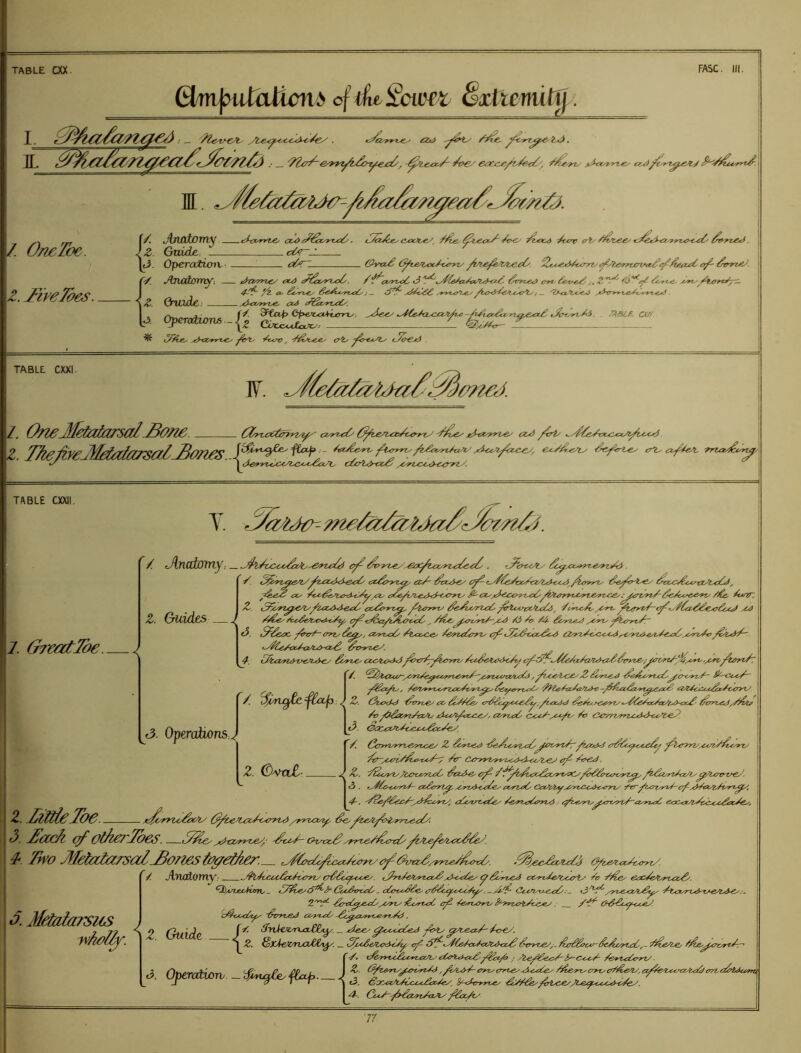 TABLE CXX. FASC. III.
Amputations of the Lower Extremity.
I. Phalanges. _ Never requisite. Same as for the fingers.
II. Phalangeal Joints. _ Not employed, great toe excepted, then same as fingers & thumb.
III. Metatarso-phalangeal Joints.
1. One Toe.
1. Anatomy same as Hand. Take care, the great toe has two or three sesamoid bones.
2. Guide. do
3. Operation. do Oval Operation preferable. Question of removal of head of bone.
2. Five Toes.
1. Anatomy. same as Hand. 1st and 3rd Metatarsal bones on level
2. Guide. same as Hand.
3. Operations
1. Flap Operation. See Metacarpo-phalangeal Joints. TABLE CVI
2. Circular. Ditto
* The same for two, three, or four Toes
TABLE CXXI.
IV. Metatarsal Bones.
1. One Metatarsal Bone. Anatomy and Operation the same as for Metacarpus.
2. The five Metatarsal Bones.
Single flap _ taken from plantar surface, either before or after making
semicircular dorsal incision.
TABLE CXXII.
V. Tarso-metatarsal Joints.
1. Great Toe.
1. Anatomy. _ Articular ends of bone expanded. Touch ligaments.
2. Guides
1. Finger passed along at base of Metatarsus from before backwards,
2. Finger passed along from behind forwards,
3. Flex foot on leg, and trace tendon of Tibialis Anticus, inserted into first
Metatarsal bone.
4. Transverse line across foot from tuberosity of 5th Metatarsal bone
3. Operations.
1. Single flap
1. Draw integument inwards, pierce 2 lines behind joint & cut
flap, terminating beyond Metatarso-phalangeal articulation
2. Cross bone a little obliquely, pass between Metatarsal bones, thus
to plantar surface, and cut up to commissure
3. Exarticulate.
2. Oval.
1. Commence 2 lines behind joint pass obliquely
to commissure of toes.
2. Turn round base of 1st phalanx following plantar groove.
4. Reflect skin, divide tendons, open joint and exarticulate.
2. Little Toe. Similar Operations may be performed.
3. Each of other Toes. The same, but Oval method preferable.
4. Two Metatarsal Bones together. Modification of Oval method. Béclard's Operation.
5. Metatarsus wholly.
1. Anatomy. Articulation oblique. Internal side 9 lines anterior to the external.
Direction. The 5th & Cuboid. double obliquity. _ 4th Curved. _ 3rd nearly transverse. _
2nd lodged in kind of tenon & mortice. _ 1st Oblique
Study bones and ligaments.
2. Guide
1. Internally _ See guides for great toe.
2. Externally. _ Tuberosity of 5th Metatarsal bone. _ hollow behind, _ there the joint
3. Operation. _ Single flap.
1. Semilunar dorsal flap; reflect & cut tendons.
2. Open joints, first on one side, then on other, afterwards on dorsum
3. Exarticulate, & some little force requisite.
4. Cut plantar flap
77